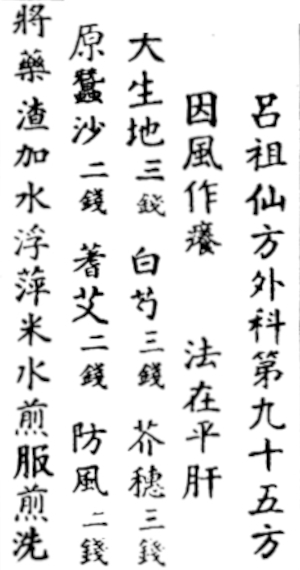 呂祖仙方外科第九十五方
因風作癢　法在平肝
大生地三錢　白芍三錢　芥穗三錢
原蠶沙二錢　蓍艾二錢　防風二錢
將藥渣加水浮萍米水煎服煎洗